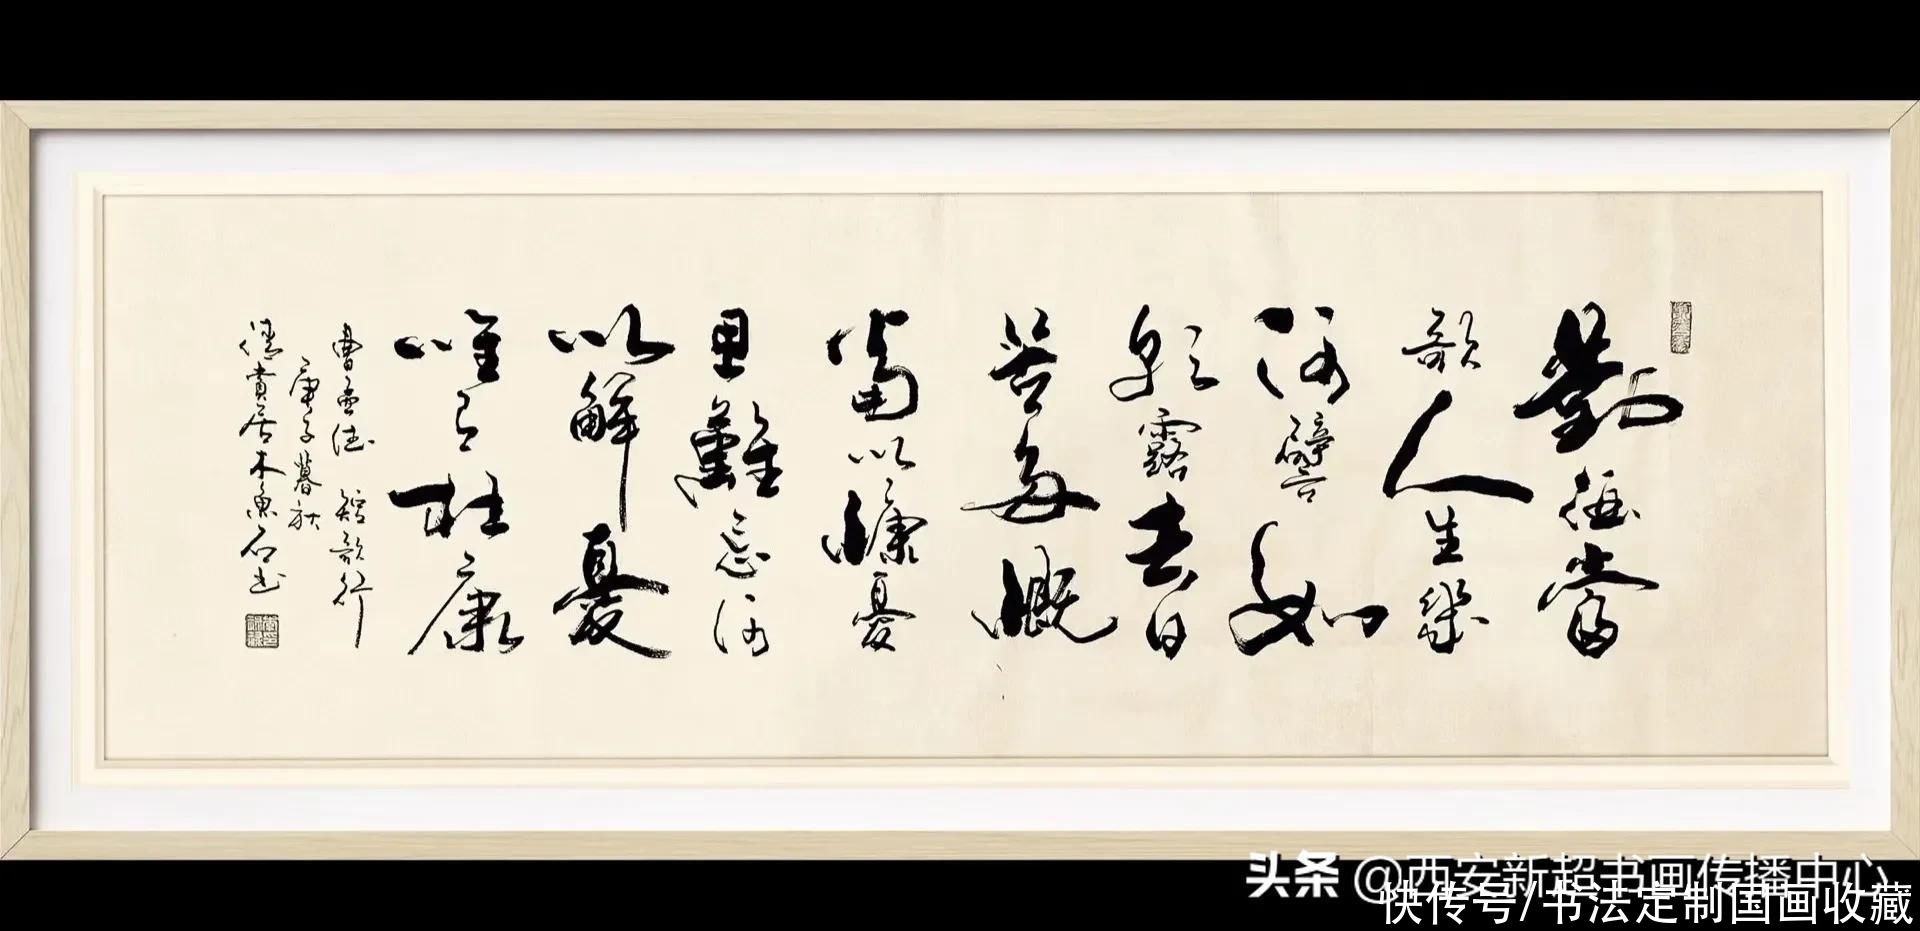 對酒當
歌人生幾
何譬如
朝露去日
苦多慨
當以慷憂
思難忘何
以解憂
唯有杜康
曹孟德 短歌行
庚子暮秋
貴居木魚石书
头条 @西安新超书画传播中心
快传号/书法定制国画收藏